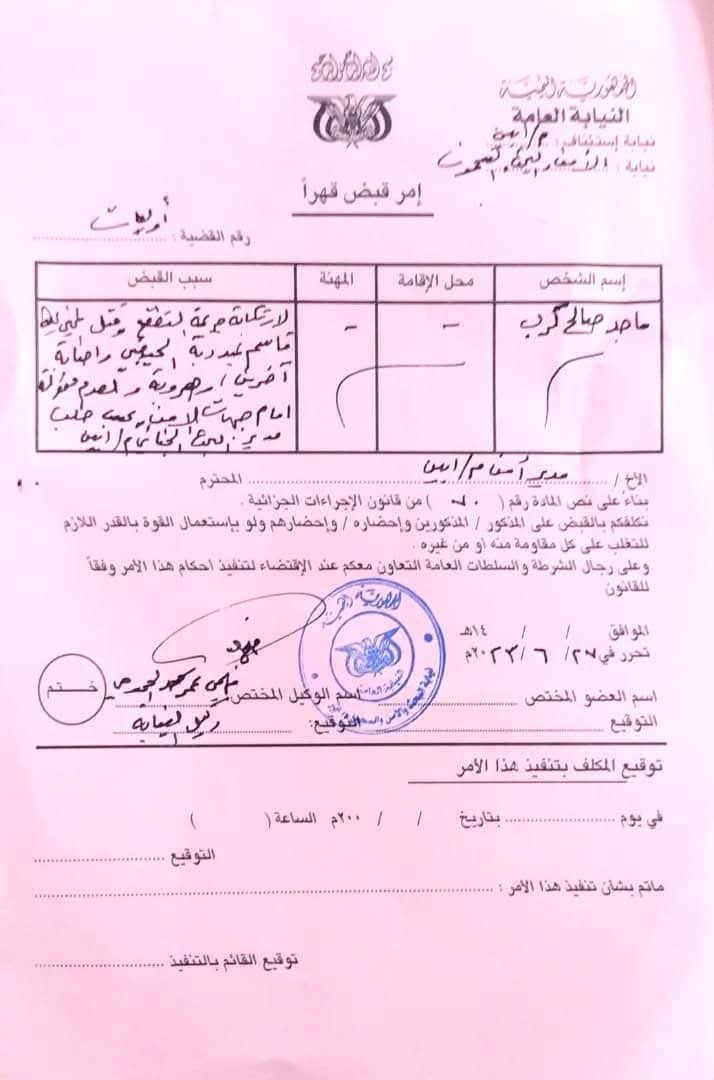 الجمهورية اليمنية
النيابة العامة
نيابة إستئناف : م/ابين
نيابة :
إمر قبض قهراً
رقم القضية : أوليات
إسم الشخص محل الإقامة المهنة سبب القبض
ماجد صالح كرب - - لارتكابه جريمة التقطع وقتل
قاسم بمديرية واصابة
آخرين / وهروبه
امام جهات الامن حسب طلب
مدير البحث الجنائي م/ابين
الأخ / مدير أمن م/ابين المحترم
بناءً على نص المادة رقم ( ٧٠ ) من قانون الإجراءات الجزائية .
نكلفكم بالقبض على المذكور / المذكورين وإحضاره / وإحضارهم ولو بإستعمال القوة بالقدر اللازم
للتغلب على كل مقاومة منه أو من غيره .
وعلى رجال الشرطة والسلطات العامة التعاون معكم عند الإقتضاء لتنفيذ احكام هذا الامر وفقاً
للقانون
الموافق / / ١٤هـ
تحرر في ٢٧/ ٦ /٢٠٢٣م
إسم العضو المختص
إسم الوكيل المختص
ختم
التوقيع
التوقيع: وكيل النيابة
الجمهورية اليمنية
النيابة العامة
توقيع المكلف بتنفيذ هذا الأمر
في يوم بتاريخ / / ٢٠٠م الساعة ( )
التوقيع
ماتم بشأن تنفيذ هذا الأمر :
توقيع القائم بالتنفيذ